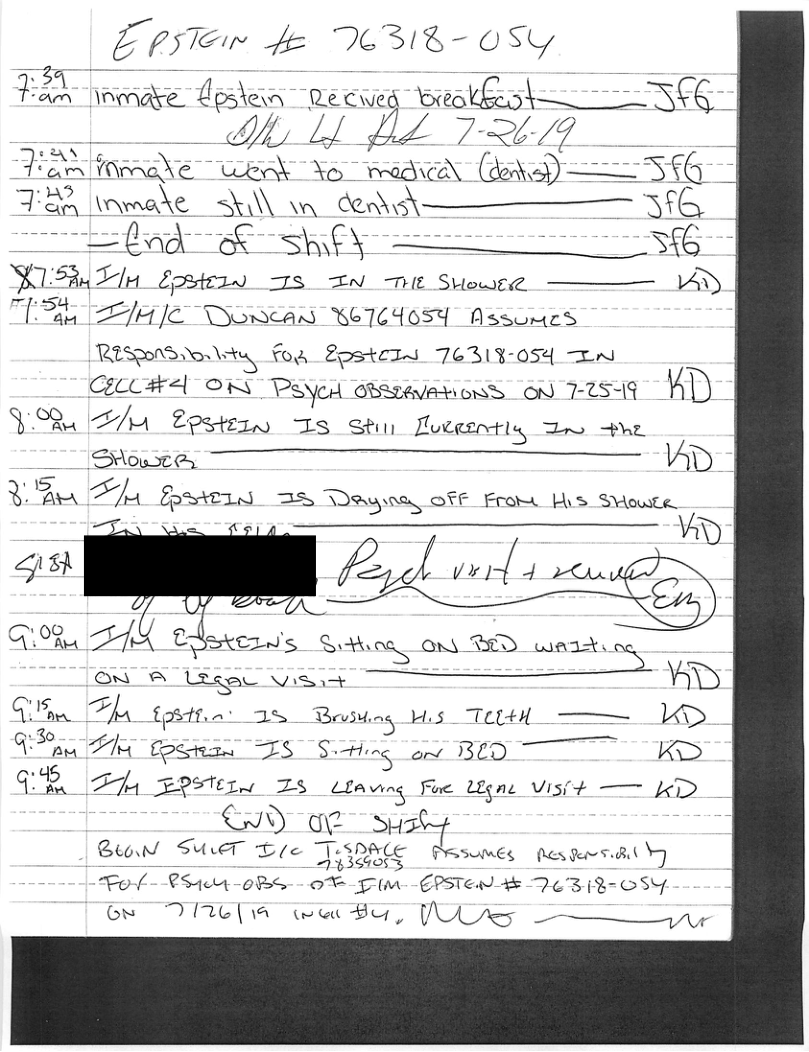 EPSTEIN # 76318-054
7:39 am inmate Epstein Recived breakfast JfG
7-26-19
7:41 am inmate went to medical (dentist) JfG
7:43 am inmate still in dentist JfG
-End of shift JfG
7:53 AM I/M EPSTEIN IS IN THE SHOWER KD
7:54 AM I/M/C DUNCAN 86764054 ASSUMES
RESPONSIBILITY FOR EPSTEIN 76318-054 IN
CELL #4 ON PSYCH OBSERVATIONS ON 7-25-19 KD
8:00 AM I/M EPSTEIN IS Still CURRENTLY IN the
SHOWER KD
8:15 AM I/M EPSTEIN IS DRYING OFF FROM HIS SHOWER
IN HIS KD
Psych visit +
9:00 AM I/M EPSTEIN'S Sitting ON BED WAITING
ON A LEGAL VISIT KD
9:15 AM I/M Epstein IS Brushing His TEETH KD
9:30 AM I/M EPSTEIN IS Sitting ON BED KD
9:45 AM I/M EPSTEIN IS LEAVING FOR LEGAL VISIT KD
END OF SHIFT
BEGIN SHIFT I/C TISDALE ASSUMES RESPONSIBILITY
78359053
FOR PSYCH OBS OF I/M EPSTEIN # 76318-054
ON 7/26/19 IN Cell #4.